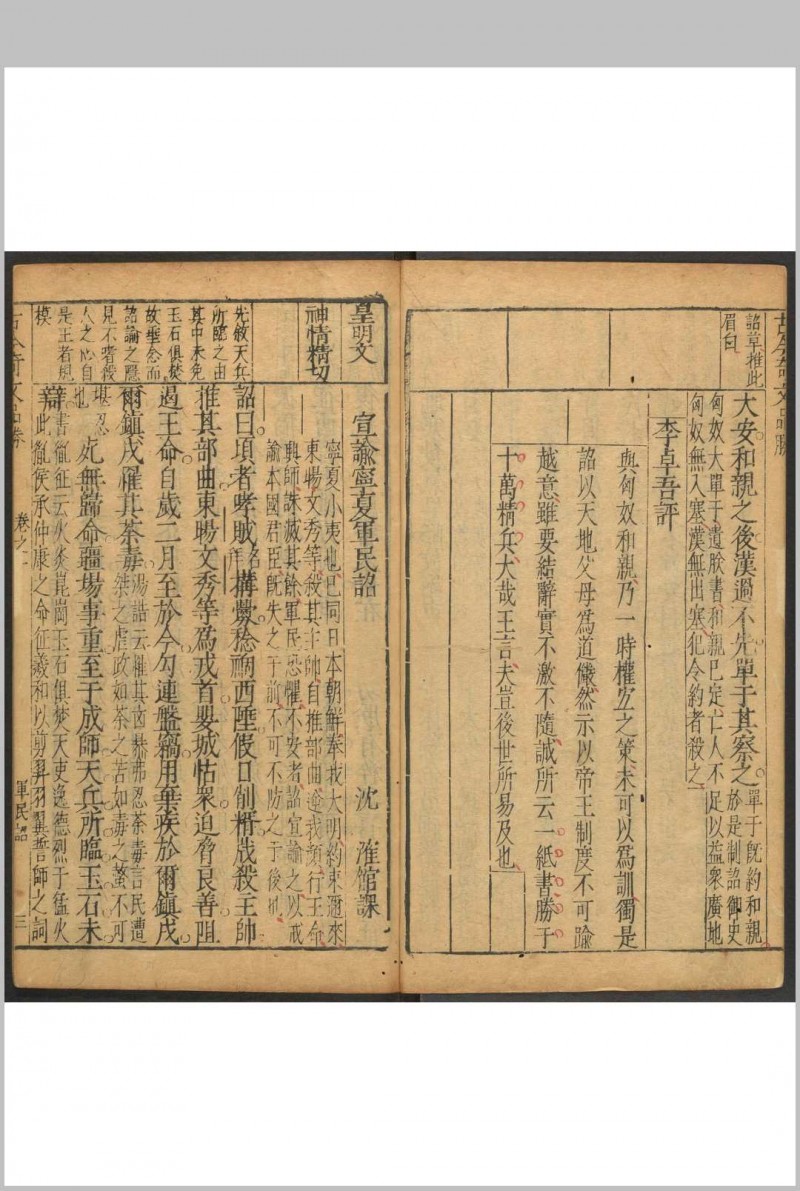 詔草推此
眉白
大安和親之後漢過不先單于其察之單于既約和親
於是制詔御史
匈奴大單于遺朕書和親已定亡人不足以益衆廣地
匈奴無入塞漢無出塞犯令約者殺之
李卓吾評
與匈奴和親乃一時權宜之策未可以為訓獨是
詔以天地父母為道儼然示以帝王制度不可踰
越意雖要結辭實不激不隨誠所云一紙書勝于
十萬精兵大哉王言夫豈後世所易及也
皇明文
宣諭寧夏軍民詔
沈㴶館課
神情精切
寧夏小夷也已同日本朝鮮奉我大明約束邇來
東暘文秀等殺其主帥自推部曲逆我頻行王命
興師誅滅其餘軍民恐懼不安者詔宣諭之以戒
諭本國君臣既失之于前不可不防之于後也
先敘天兵
所臨之由
其中未免
玉石俱焚
故垂念而
詔諭之隱
見不嗜殺
人之心自
是王者規
模
詔曰頃者哱賊名拜搆釁稔禍西陲假日削糈戕殺主帥
推其部曲東暘文秀等為戎首嬰城怙衆迫脅良善阻
遏王命自歲二月至於今勾連盤竊用棄疾於爾鎮戍
爾鎮戍罹其荼毒湯誥云罹其凶害弗忍荼毒言民遭
桀之虐政如荼之苦如毒之螫不可
堪忍
也
死無歸命疆場事重至于成師天兵所臨玉石未
辯書胤征云火炎崑岡玉石俱焚天吏逸德烈于猛火
此胤侯承仲康之命征羲和以剪羿羽翼誓師之詞
卷之一
軍民詔
三